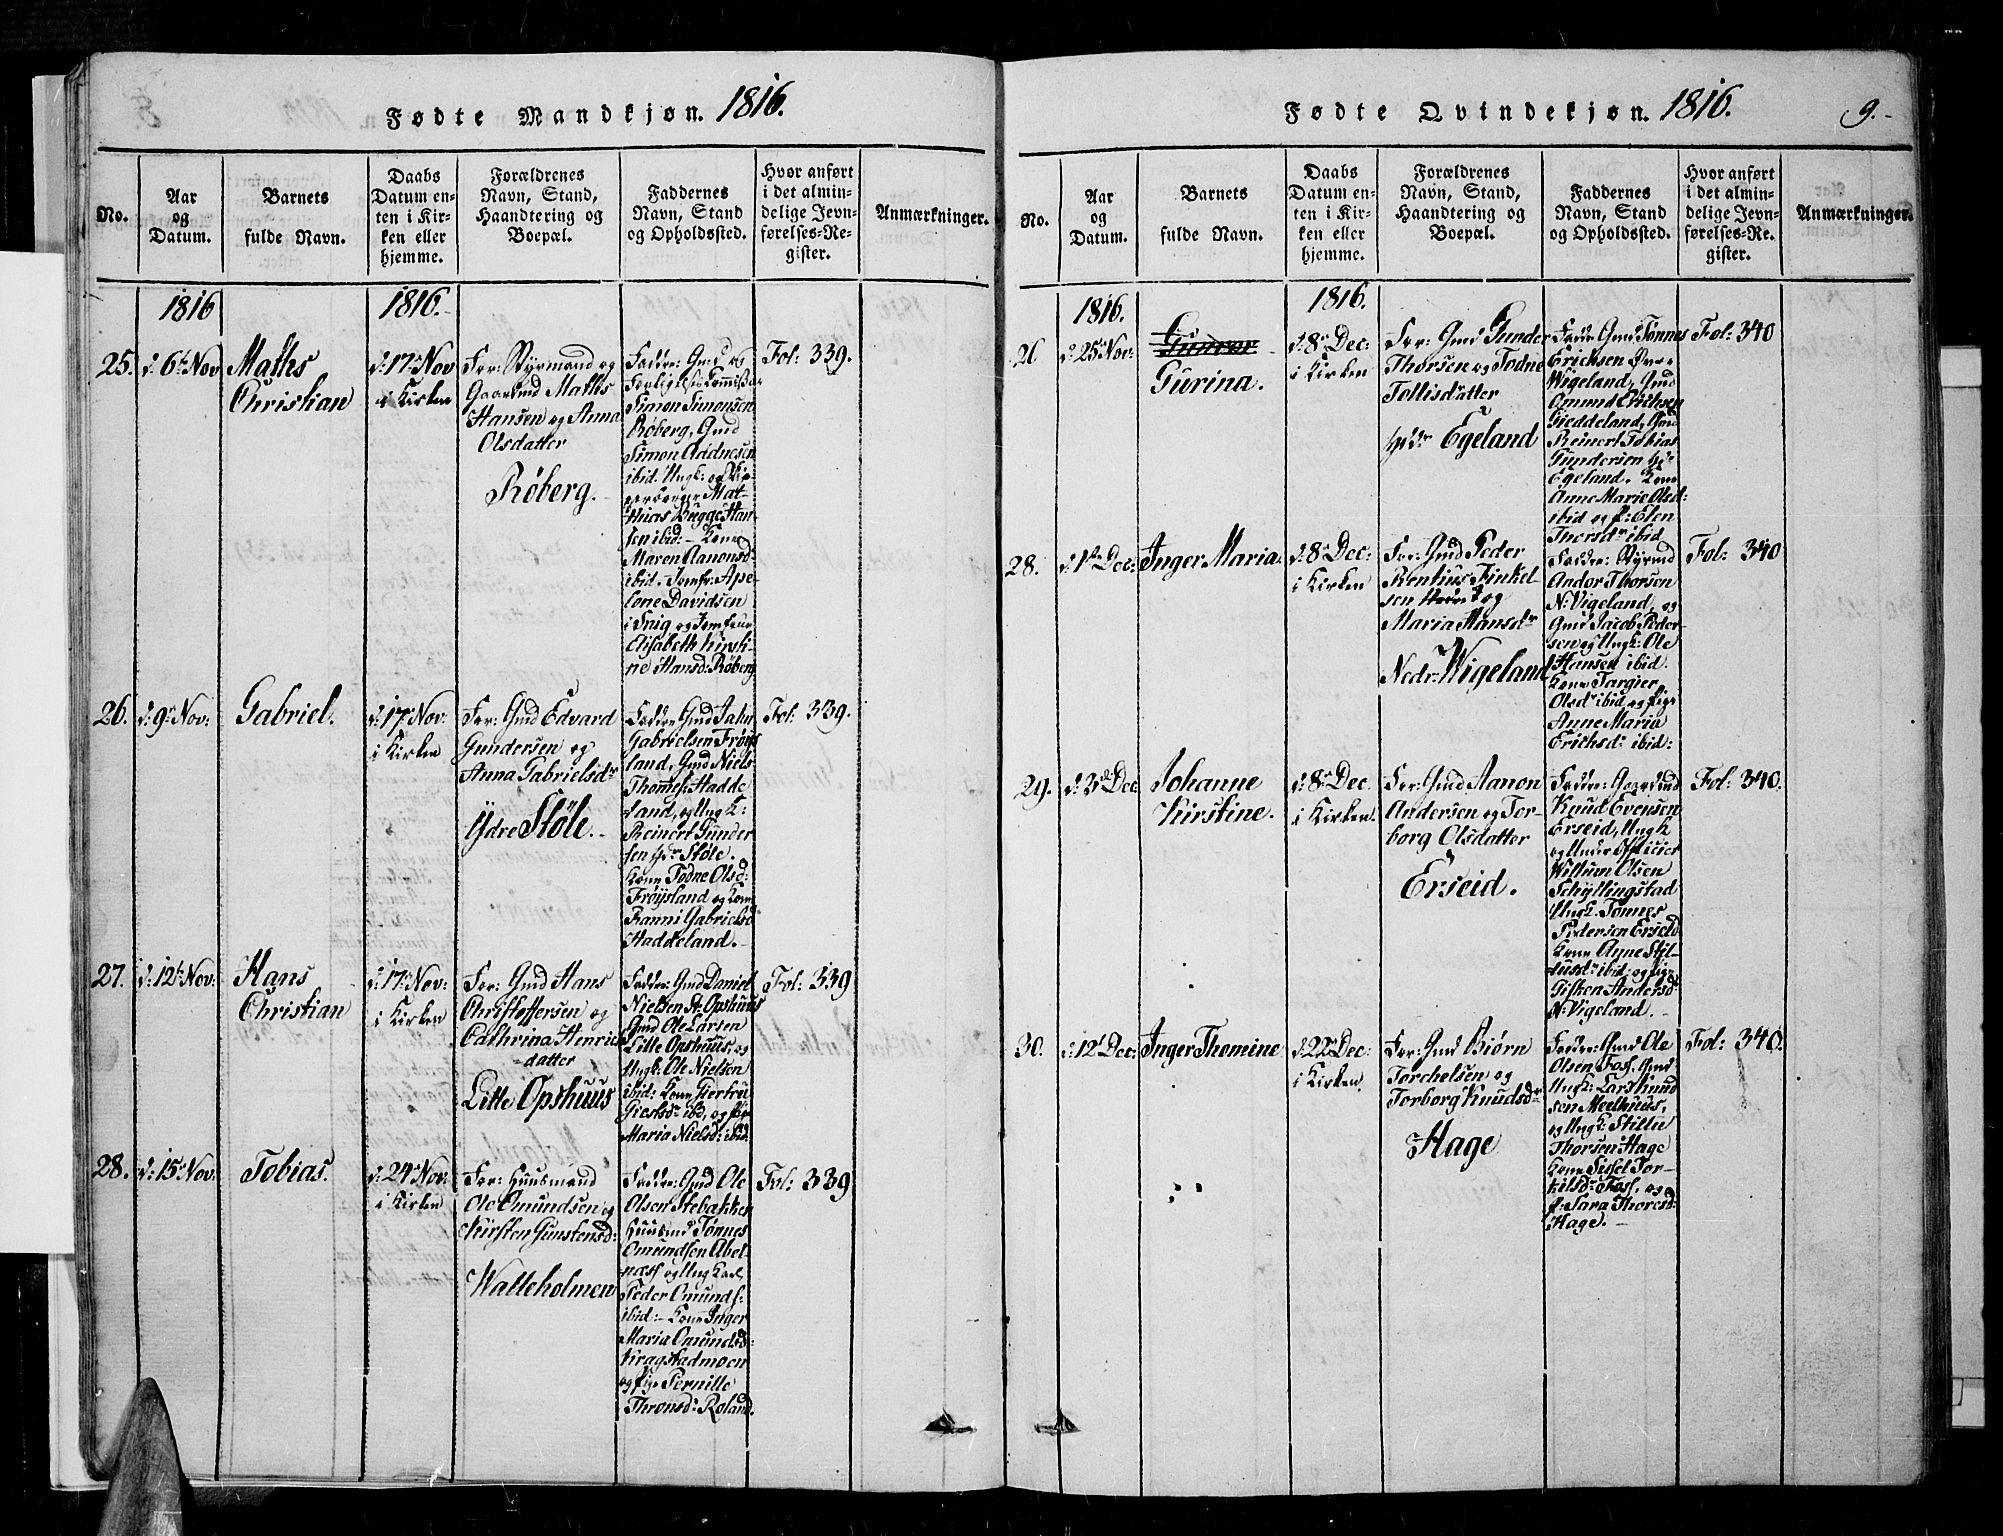 Fødte Mandkjøn. 1816.
No.
Aar
og
Datum.
Barnets
fulde Navn.
Daabs
Datum en-
ten i Kir-
ken eller
hjemme.
Forældrenes
Navn, Stand,
Haandtering og
Boepæl.
Faddernes
Navn, Stand
og Opholdssted.
Hvor anført
i det almin-
delige Jevn-
førelses-Re-
gister.
Anmærkninger.
1816
1816.
25.
d: 6te Nov
Maths
Christian
d: 17de Nov
i Kirken
For: Styrmand og
Gaardmd Mathis
Hansen og Anna
Olsdatter
Røberg.
Faddre: Gmd og
Forligelses Commissær
Simon Simonsen
Røberg, Gmd
Simon Addnesen
ibid. Ungk: og
Mat-
thias Bugge Han-
sen ibid:- Kone
Maren Aanonsd:
ibid. Jomfr: Ape-
lone Davidsen
i Svig og Jomfrue
Elisabeth Kirsti-
ne Hansd: Røberg
Fol: 339.
26.
d: 9de Nov:
Gabriel.
d: 17de Nov:
i Kirken
For: Gmd Edvard
Gundersen og
Anna Gabrielsdr
Ydre Støle.
Faddre Gmd Jahn
Gabrielsen Frøys
land, Gmd Niels
Thomes: Hadde
land, og Ungk:
Reinert Gunder
sen Ydr Støle.
Kone Todne Olsd:
Frøysland og Kone
Ranni Gabrielsd
Haddeland.
Fol: 339.
27.
d: 12te Nov:
Hans
Christian
d: 17de Nov:
i Kirken
For: Gmd Hans
Christoffersen og
Cathrina Henrics
datter
Litle Opshuus
Faddre: Gmd Daniel
Nielsen St. Opshuus
Gmd Ole Larsen
Litle Opshuus, og
Ungk: Ole Nielsen
ibid: Kone Giertrud
Giertsdr ibd, og Pige
Maria Nielsd: ibd.
Fol: 339
28.
d: 15de Nov:
Tobias.
d: 24de Nov:
i Kirken
For: Huusmand
Ole Omundsen og
Kirsten Gunstensd:
Walleholmen
Faddre: Gmd Ole
Olsen Stebakken
Huusmd Tønnes
Omundsen Abel-
næss og Ung Karl
Peder Omunds:
ibid:- Kone Inger
Maria Omundsd:
Kragstadmoen
og Pige Pernille
Thronsd: Roland.
Fol: 339
Fødte Qvindekjøn. 1816.
9.
No.
Aar
og
Datum.
Barnets
fulde Navn.
Daabs
Datum en-
ten i Kir-
ken eller
hjemme.
Forældrenes
Navn, Stand,
Haandtering og
Boepæl.
Faddernes
Navn, Stand
og Opholdssted.
Hvor anført
i det almin-
delige Jevn-
førelses-Re-
gister.
Anmærkninger.
1816.
1816.
d: 25de Nov:
Gurina.
d: 8de Dec:
i Kirken
For: Gmd Gunder
Thorsen og Todne
Tollisdatter
Ydr Egeland
Faddr Gmd Tønnes
Erichsen Øvre
Wigeland, Gmd
Omund Erichsen
Gieddeland, Gmd
Reinert Tobias
Gundersen Ydr
Egeland. Kone
Anne Marie Olsd:
ibid og P: Elen
Thorsdr ibid
Fol: 340
28.
d: 1ste Dec:
Inger Maria.
d: 8de Dec:
i Kirken
For: Gmd Peder
Rentius Finkel-
sen og
Maria Hansdr
Nedr: Wigeland
Faddre: Styrmd
Andor Thorsen
N: Vigeland, og
Gmd Jacob Peder-
sen og Ungk: Ole
Hansen ibid.
Kone Targier
Olsdr ibid, og Pige
Anne Maria
Erichsdr ibid:
Fol: 340
29.
d: 3die Dec
Johanne
Kirstine.
d: 8de Dec.
i Kirken.
For: Gmd Aanon
Andersen og Tor-
borg Olsdatter
Erseid.
Faddre: Gaardmd
Knud Evensen
Erseid, Ungk
og Under Officier
Willum Olsen
Schyllingstad
Ungk: Tønnes
Pedersen Erseid
Kone Anne Stil-
lusdr ibid; og Pige
Gisken Andersd:
N: Vigeland.
Fol: 340.
30.
d: 12te Dec:
Inger Thomine
d: 22de Dec:
i Kirken
For: Gmd Biørn
Torchelsen og
Torborg Knudsdr
Hage
Faddre: Gmd Ole
Olsen Foss, Gmd
Ungk: Lars Knud
sen Meelhuus,
og Ungk: Stillu
Thorsen Hage
Kone Sissel Tor-
kilsdr Foss, og
P: Sara Thoresd:
Hage.
Fol: 340.